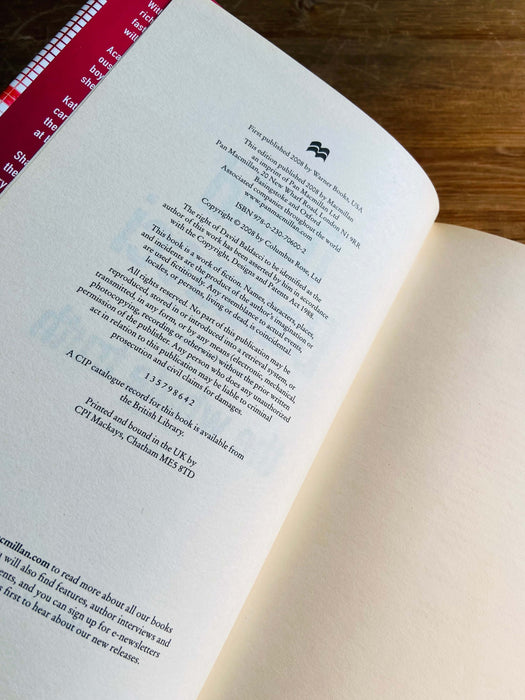 With
rich
fast
will
Aca
ous
boy
she
Kat
car
the
at
Sha
the
First published 2008 by Warner Books, USA
This edition published 2008 by Macmillan
an imprint of Pan Macmillan Ltd
Pan Macmillan, 20 New Wharf Road, London N1 9RR
Basingstoke and Oxford
Associated companies throughout the world
www.panmacmillan.com
ISBN 978-0-230-70600-2
Copyright © 2008 by Columbus Rose, Ltd
The right of David Baldacci to be identified as the
author of this work has been asserted by him in accordance
with the Copyright, Designs and Patents Act 1988.
This book is a work of fiction. Names, characters, places,
and incidents are the product of the author's imagination or
are used fictitiously. Any resemblance to actual events,
locales, or persons, living or dead, is coincidental.
All rights reserved. No part of this publication may be
reproduced, stored in or introduced into a retrieval system, or
transmitted, in any form, or by any means (electronic, mechanical,
photocopying, recording or otherwise) without the prior written
permission of the publisher. Any person who does any unauthorized
act in relation to this publication may be liable to criminal
prosecution and civil claims for damages.
1 3 5 7 9 8 6 4 2
A CIP catalogue record for this book is available from
the British Library.
Printed and bound in the UK by
CPI Mackays, Chatham ME5 8TD
cmillan.com to read more about all our books
will also find features, author interviews and
ents, and you can sign up for e-newsletters
s first to hear about our new releases.